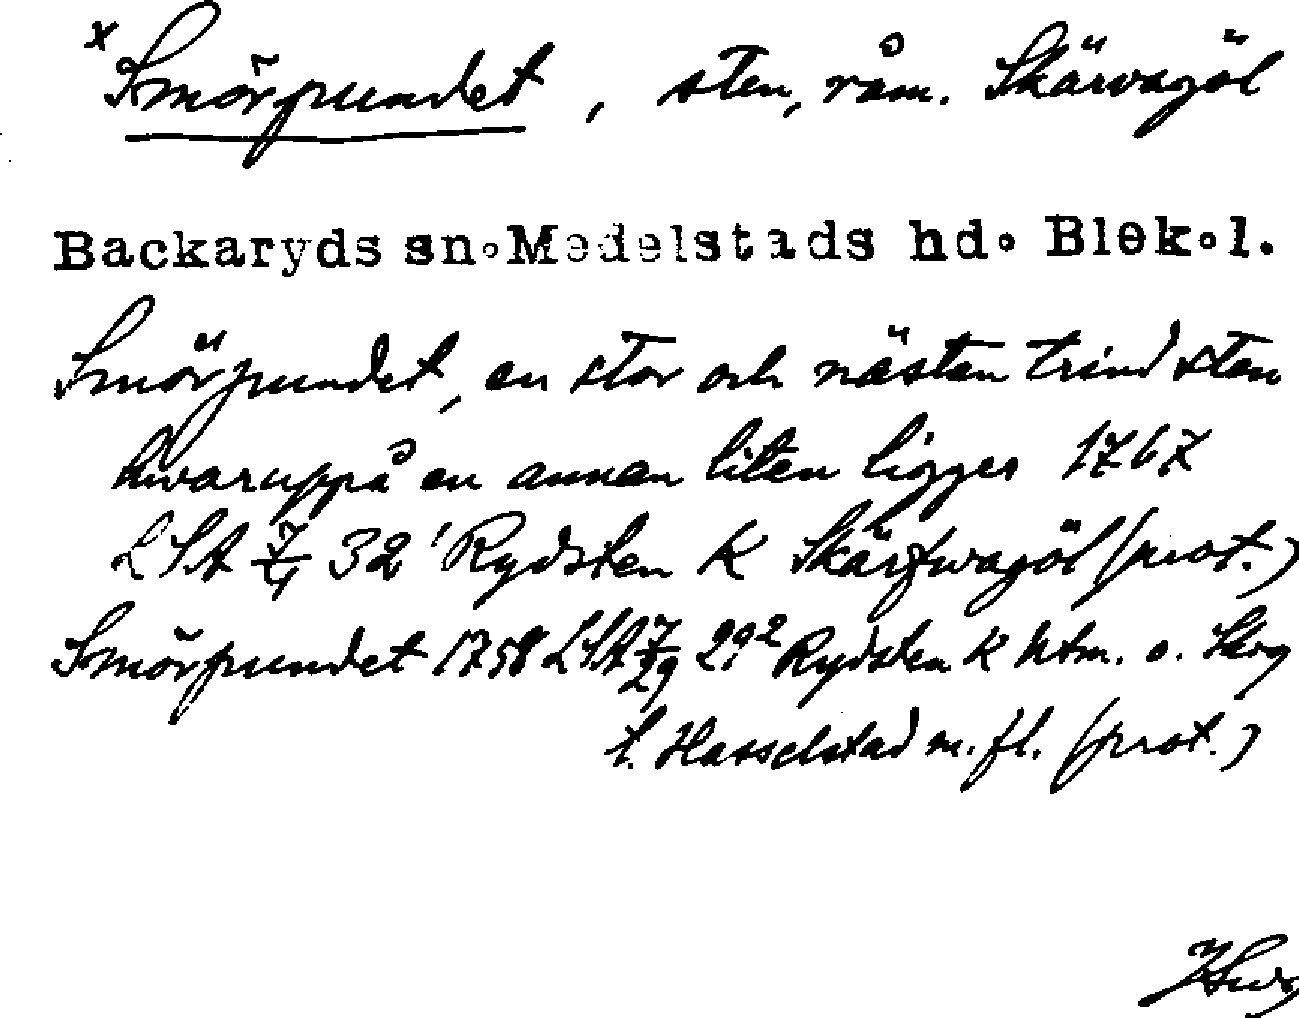 x Smörpundet, sten, råm. Skärvagöl
Backaryds sn. Medelstads hd. Blek.l.
Smörpundet, en stor och nästan trind sten
hwaruppå en annan liten ligger 1767
LSA 7/4 32¹ Rydsten K Skärfwagöl (prot.)
Smörpundet 1758 LSA 7/29 29² Rydsten K htm. o. Skog
t. Hasselstad m.fl. (prot.)